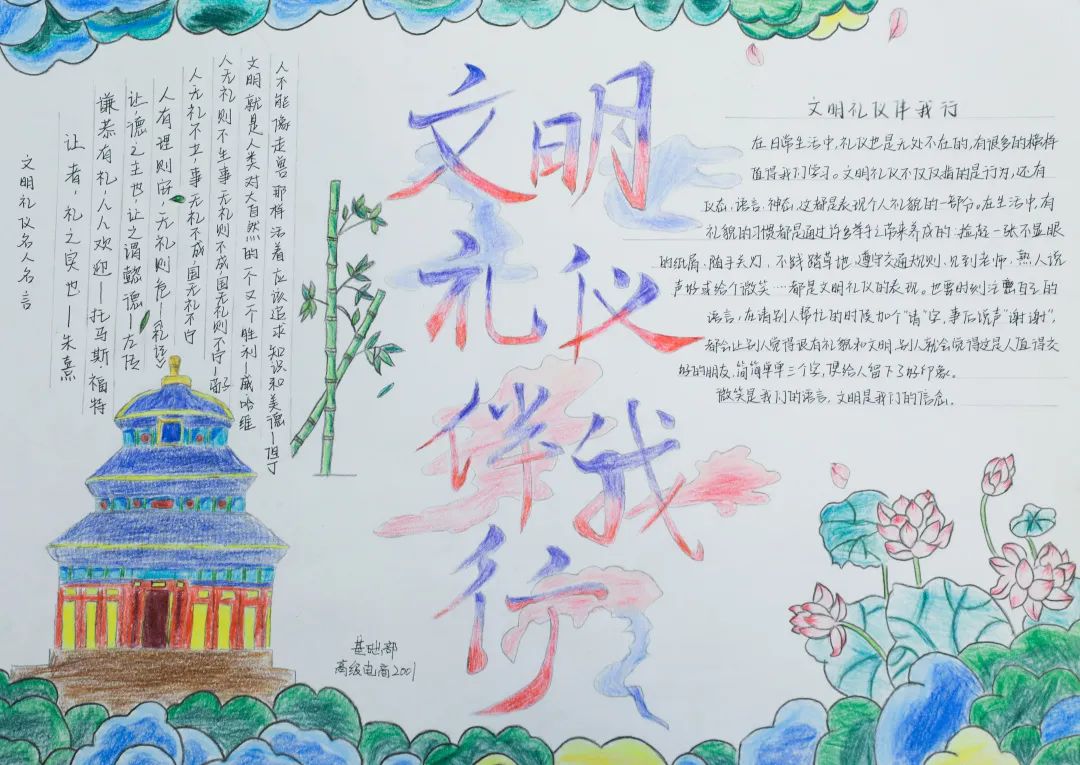 文明礼仪名人名言
让者,礼之实也—朱熹
谦恭有礼,人人欢迎—托马斯·福特
让,德之主也,让之谓懿德—左传
人有理则安,无礼则危—《礼记》
人无礼不生,事无礼不成,国无礼不宁
人无礼则不生事无礼则不成国无礼则不宁—荀子
文明就是人类对大自然的一个又一个胜利—威哈维
人不能像走兽那样活着应该追求知识和美德—但丁
文明
礼仪
伴我
行
基础部
高级电商2001
文明礼仪伴我行
在日常生活中,礼仪也是无处不在的,有很多的榜样
值得我们学习。文明礼仪不仅仅指的是行为,还有
仪态,语言,神态,这都是表现个人礼貌的一部分。在生活中,有
礼貌的习惯都是通过许多举手之劳来养成的:捡起一张不显眼
的纸屑,随手关灯,不践踏草地,遵守交通规则,见到老师,熟人说
声好或给个微笑…都是文明礼仪的表现。也要时刻注意自己的
语言,在请别人帮忙的时候加个"请"字,事后说声"谢谢",
都会让别人觉得很有礼貌和文明,别人就会觉得这是人值得交
好的朋友,简简单单三个字,便给人留下了好印象。
微笑是我们的语言,文明是我们的信念。